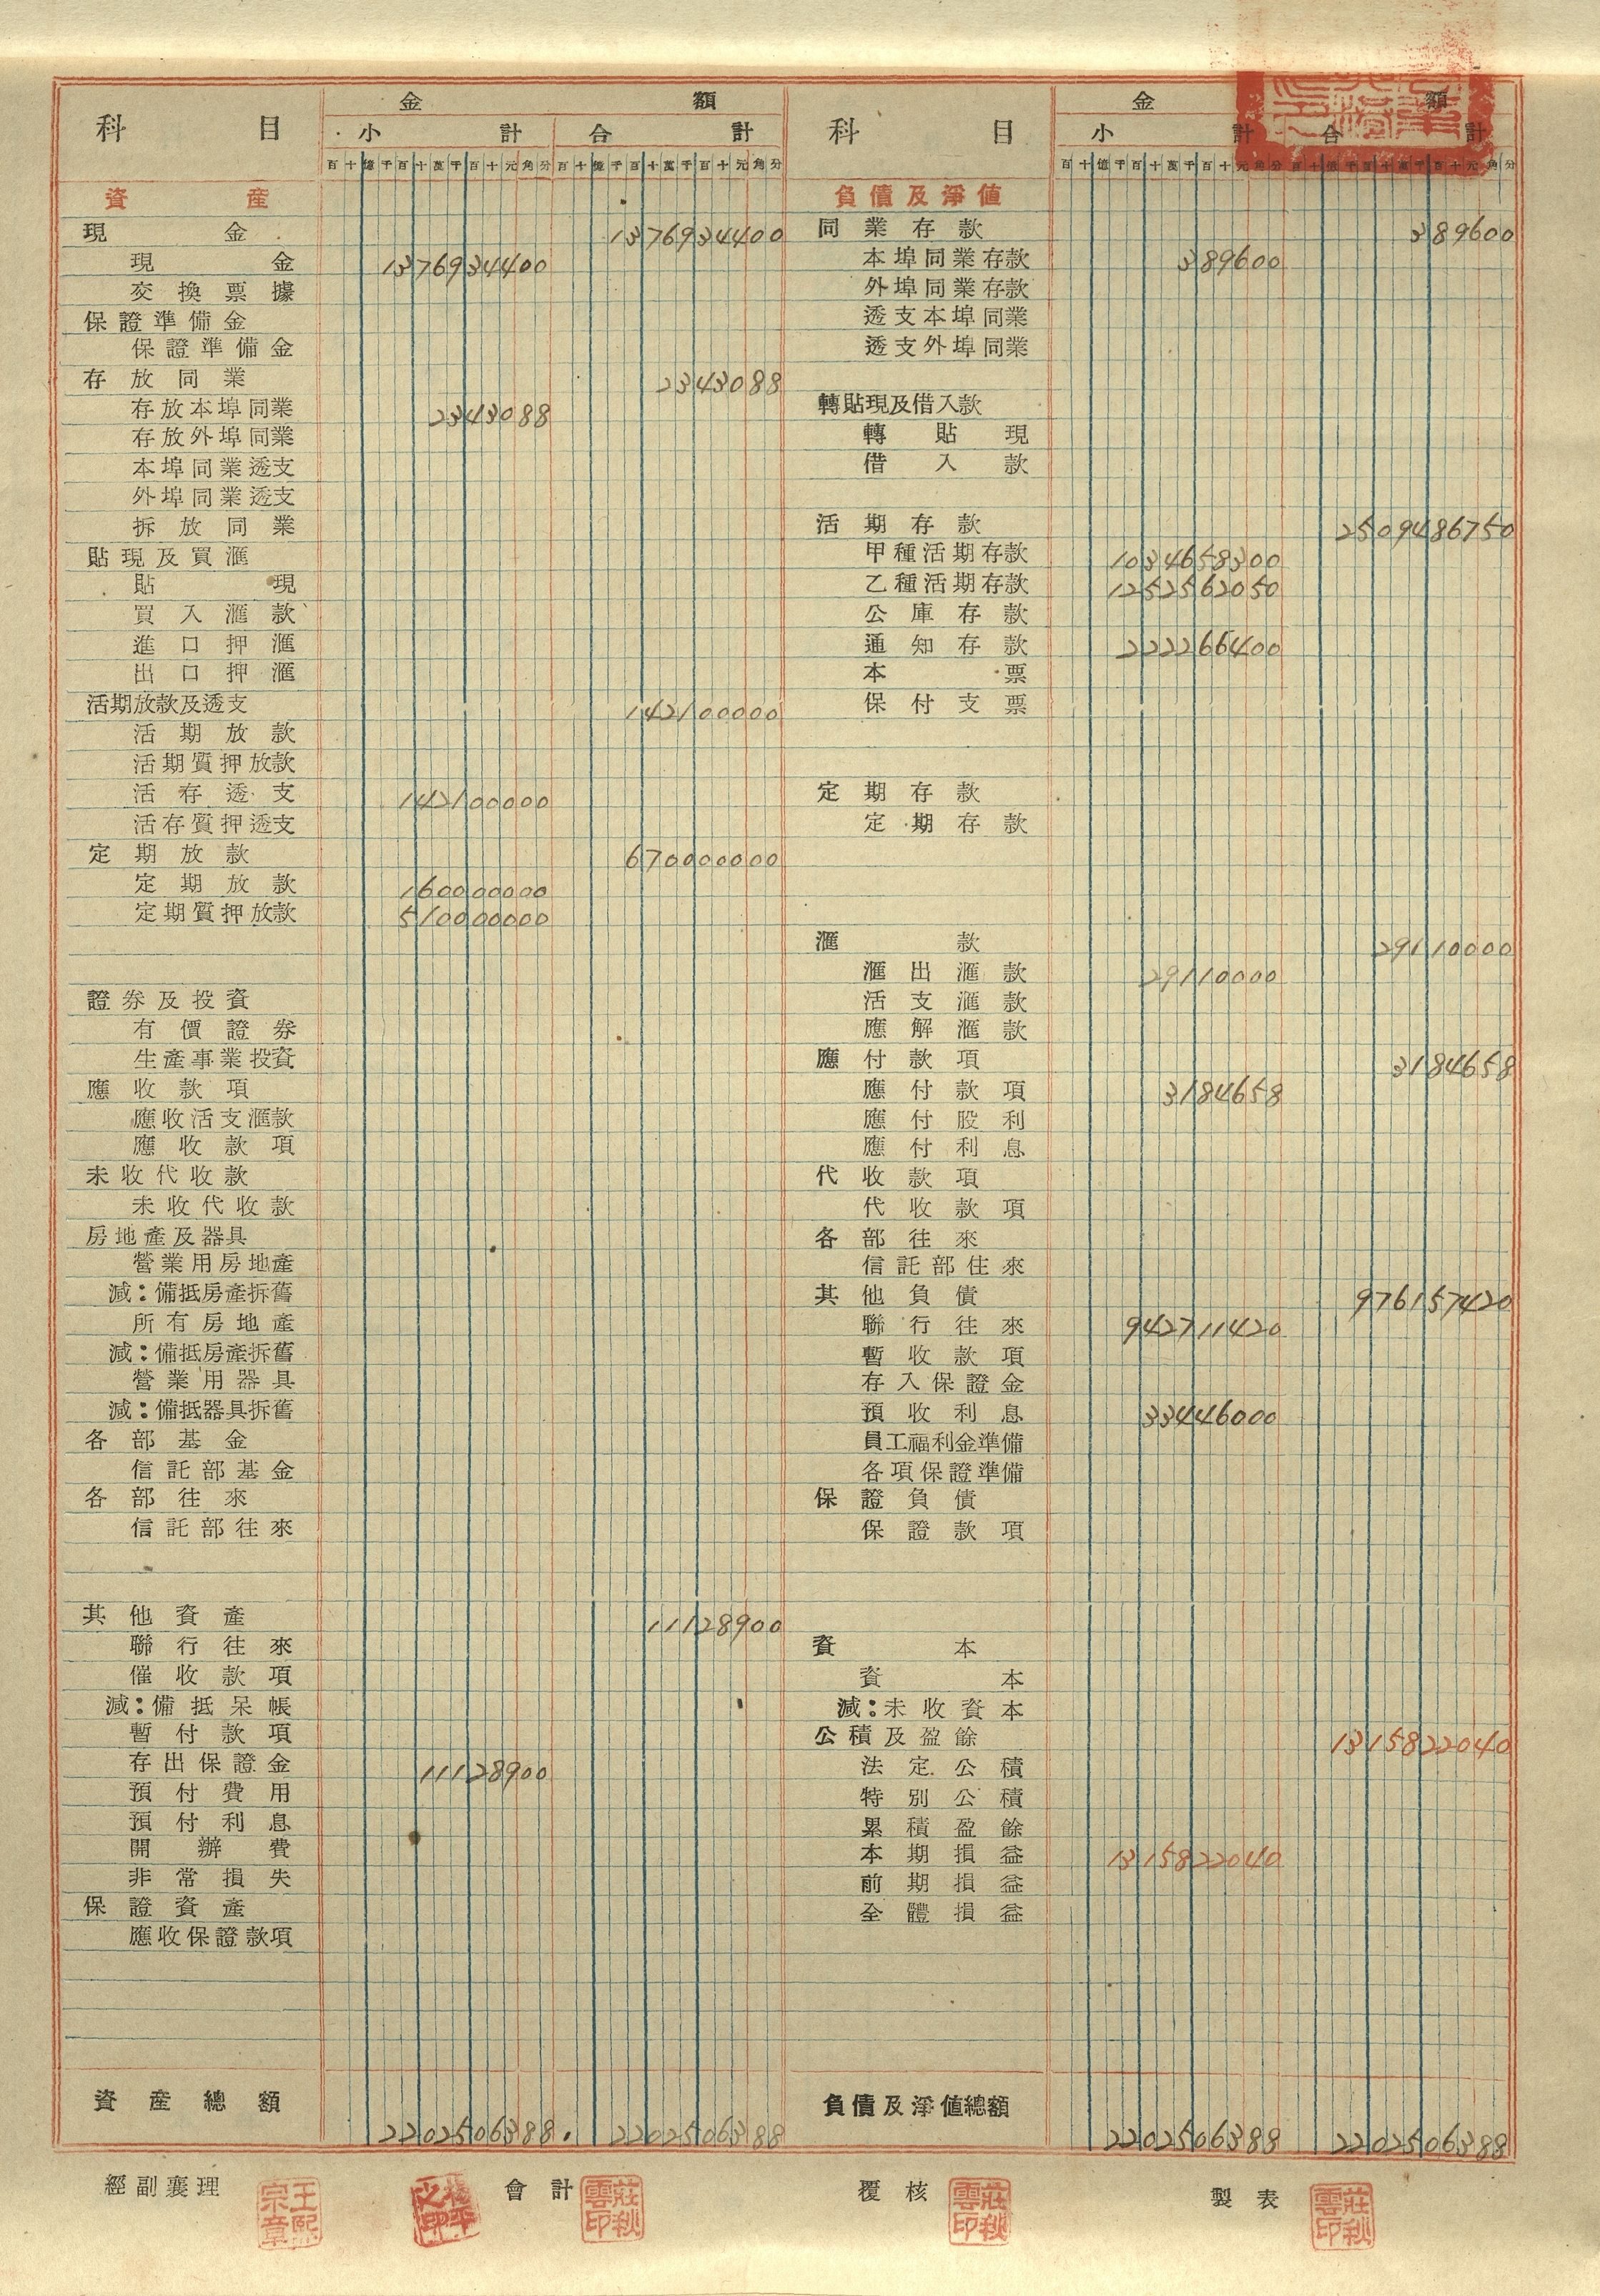 科目 金額 科目 金額
小計 合計 小計 合計
百十億千百十萬千百十元角分 百十億千百十萬千百十元角分 百十億千百十萬千百十元角分 百十億千百十萬千百十元角分
資產
現金 1376934400
現金 1376934400
交換票據
保證準備金
保證準備金
存放同業 2343088
存放本埠同業 2343088
存放外埠同業
本埠同業透支
外埠同業透支
拆放同業
貼現及買滙
貼現
買入滙款
進口押滙
出口押滙
活期放款及透支 142100000
活期放款
活期質押放款
活存透支 142100000
活存質押透支
定期放款 670000000
定期放款 160000000
定期質押放款 510000000
證券及投資
有價證券
生產事業投資
應收款項
應收活支滙款
應收款項
未收代收款
未收代收款
房地產及器具
營業用房地產
減:備抵房產拆舊
所有房地產
減:備抵房產拆舊
營業用器具
減:備抵器具拆舊
各部基金
信託部基金
各部往來
信託部往來
其他資產 11128900
聯行往來
催收款項
減:備抵呆帳
暫付款項
存出保證金 11128900
預付費用
預付利息
開辦費
非常損失
保證資產
應收保證款項
資產總額 2202506388. 2202506388
負債及淨值
同業存款 389600
本埠同業存款 389600
外埠同業存款
透支本埠同業
透支外埠同業
轉貼現及借入款
轉貼現
借入款
活期存款 2509486750
甲種活期存款 1034658300
乙種活期存款 1252562050
公庫存款
通知存款 222266400
本票
保付支票
定期存款
定期存款
滙款 29110000
滙出滙款 29110000
活支滙款
應解滙款
應付款項 3184658
應付款項 3184658
應付股利
應付利息
代收款項
代收款項
各部往來
信託部往來
其他負債 976157420
聯行往來 942711420
暫收款項
存入保證金
預收利息 33446000
員工福利金準備
各項保證準備
保證負債
保證款項
資本
資本
減:未收資本
公積及盈餘 1315822040
法定公積
特別公積
累積盈餘
本期損益 1315822040
前期損益
全體損益
負債及淨值總額 2202506388 2202506388
經副襄理 王熙宗章 會計 莊秋雲印 覆核 莊秋雲印 製表 莊秋雲印